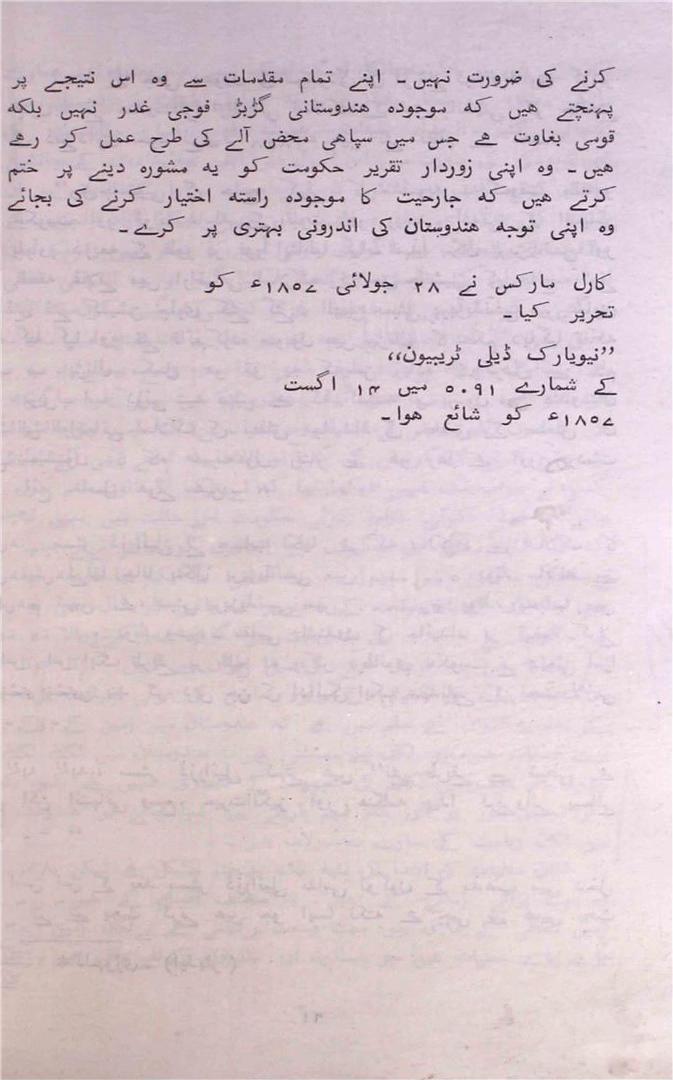 کرنے کی ضرورت نہیں۔ اپنے تمام مقدمات سے وہ اس نتیجے پر
پہنچتے ھیں کہ موجودہ ھندوستانی گڑبڑ فوجی غدر نہیں بلکہ
قومی بغاوت ھے جس میں سپاھی محض آلے کی طرح عمل کر رھے
ھیں۔ وہ اپنی زوردار تقریر حکومت کو یہ مشورہ دینے پر ختم
کرتے ھیں کہ جارحیت کا موجودہ راستہ اختیار کرنے کی بجائے
وہ اپنی توجہ ھندوستان کی اندرونی بہتری پر کرے۔
کارل مارکس نے ۲۸ جولائی ۱۸۵۷ء کو
تحریر کیا۔
’’نیویارک ڈیلی ٹریبیون‘‘
کے شمارے ۵۰۹۱ میں ۱۴ اگست
۱۸۵۷ء کو شائع ھوا۔